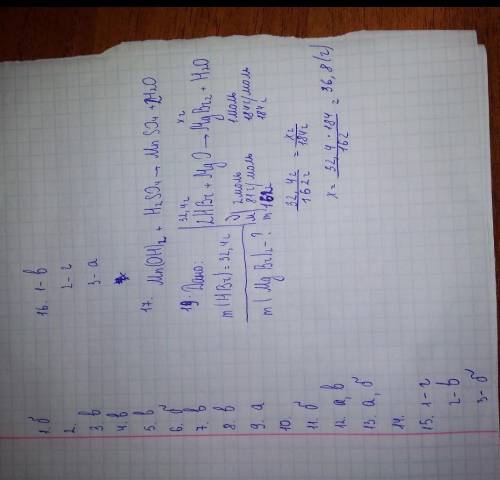 1. б
2.
3. в
4. в
5. в
6. б
7. в
8. в
9. а
10.
11. б
12. а, в
13. а, б
14.
15. 1 - г
2 - в
3 - б
16. 1 - в
2 - г
3 - а
17. Mn(OH)₂ + H₂SO₄ → MnSO₄ + 2H₂O
19. Дано:
m(HBr) = 32,4г
m(MgBr)₂ - ?
32,4г xг
2HBr + MgO → MgBr₂ + H₂O
ν 2моль 1моль
M 81г/моль 184г/моль
m 162г 184г
32,4г / 162г = xг / 184г
x = 32,4 · 184 / 162 = 36,8 (г)